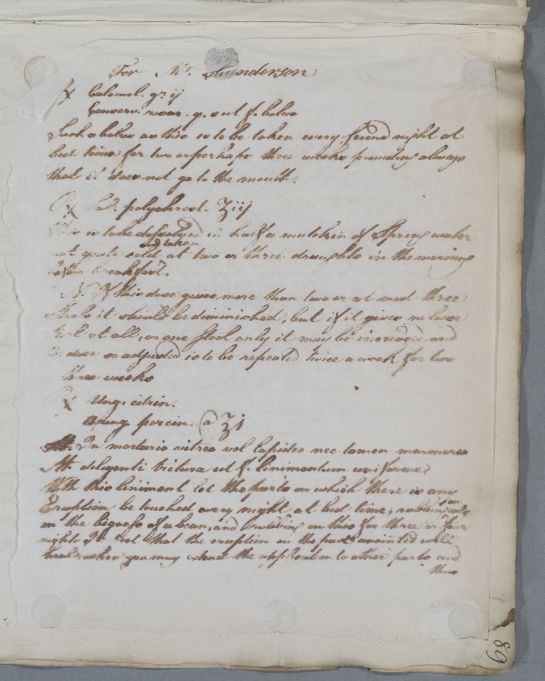 For Mr. Sunderson
℞ Calomel. gr ij
Conserv. rosar. q. s. ut f. bolus
Such a bolus as this is to be taken every second night at
bed time for two or perhaps three weeks providing always
that it does not go to the mouth.
℞ Sal. polychrest. ʒiij
This is to be dissolved in half a mutchkin of Spring water
and taken
quite cold at two or three draughts in the morning
before breakfast.
N. If this dose gives more than two or at most three
stools it should be diminished, but if it gives no loose
stool at all, or one stool only it may be increased and
the dose so adjusted is to be repeated twice a week for two
three weeks
℞ Ung. citrin.
Axung. porcin. a ʒj
M. In mortario vitreo vel lapideo nec tamen marmoreo
M. diligenti tritura ut f. linimentum uniforme
With this liniment let the parts on which there is any
Eruption be touched every night at bed time, rubbing
on the bigness of a bean, and continuing on this for three or four
nights. It is not that the eruption in the parts anointed will
heal when you may extend the application to other parts and
thus
68